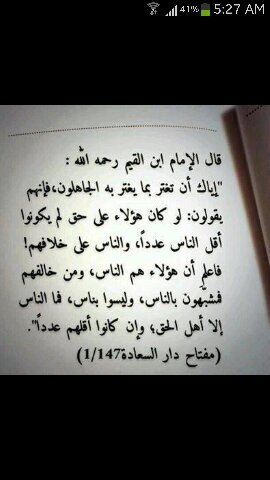 41% 5:27 AM
قال الإمام ابن القيم رحمه الله :
"إياك أن تغتر بما يغتر به الجاهلون،فإنهم
يقولون: لو كان هؤلاء على حق لم يكونوا
أقل الناس عدداً، والناس على خلافهم!
فاعلم أن هؤلاء هم الناس، ومن خالفهم
فمشبّهون بالناس، وليسوا بناس، فما الناس
إلا أهل الحق؛ وإن كانوا أقلهم عدداً".
(مفتاح دار السعادة1/147)